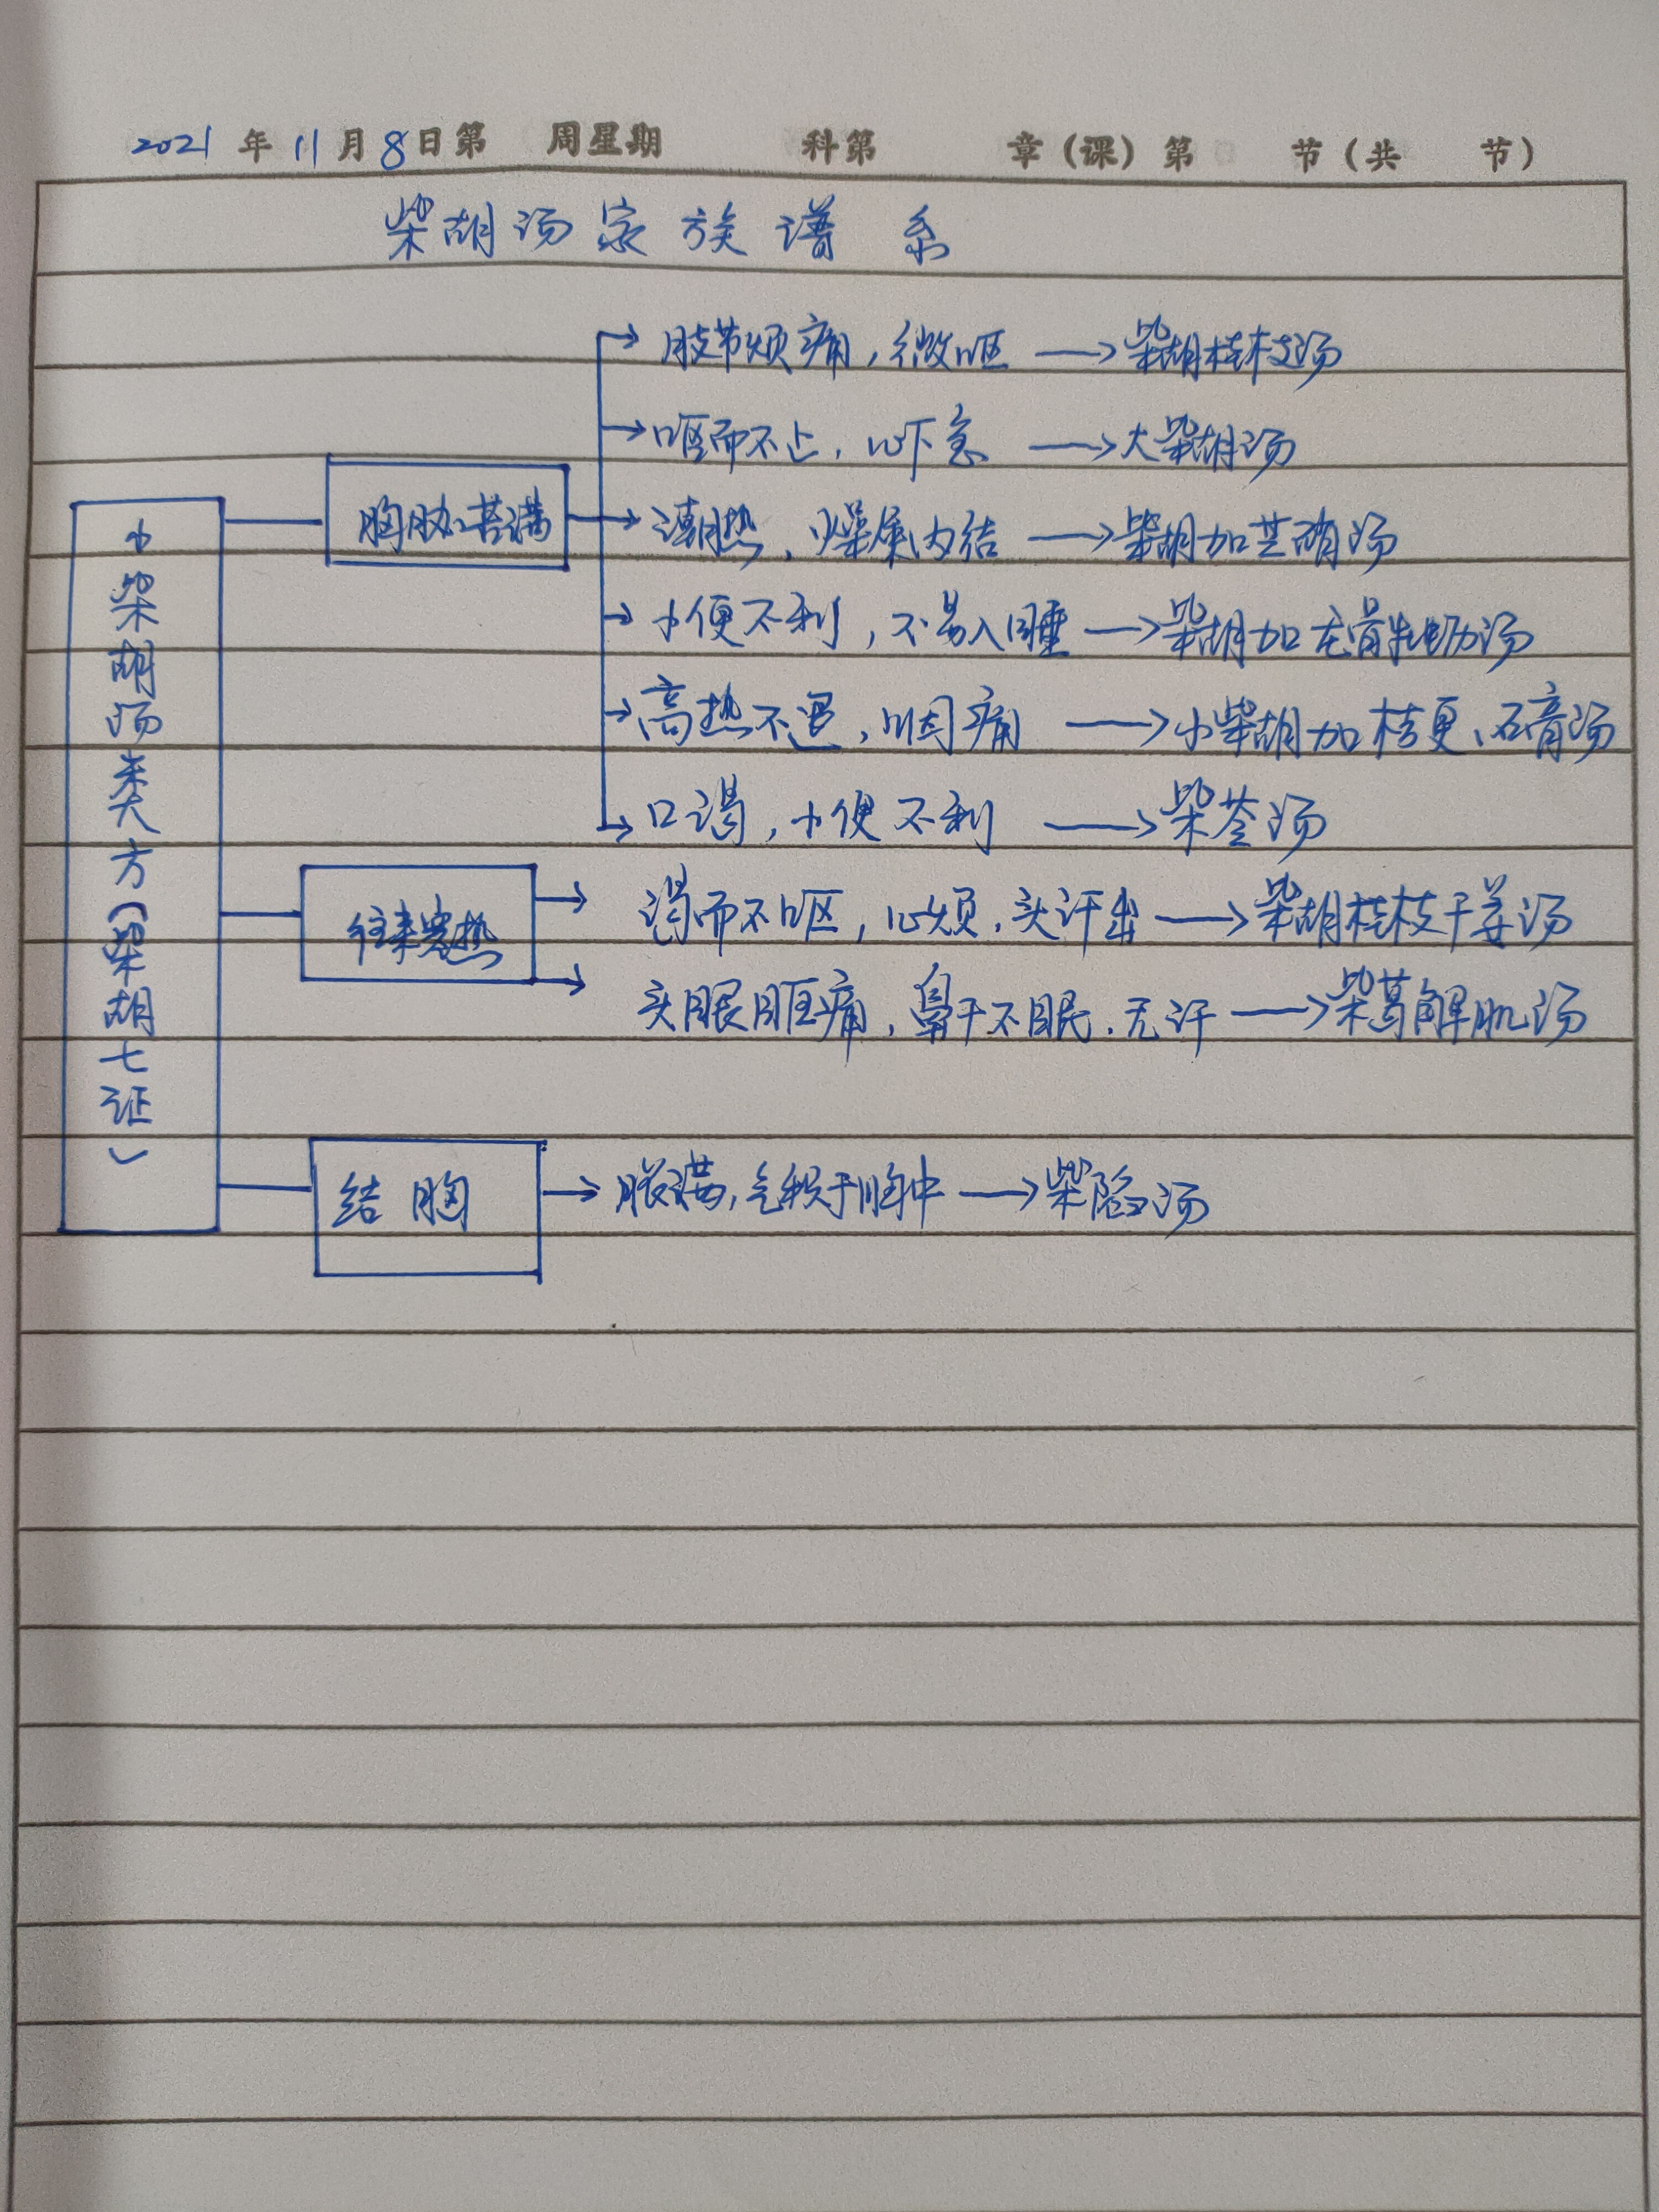 2021 年 11 月 8 日 第 周 星期 科 第 章（课）第 节（共 节）
柴胡汤家族谱系
小柴胡汤类方（柴胡七证）
胸胁苦满
肢节烦痛，微呕 → 柴胡桂枝汤
呕而不止，心下急 → 大柴胡汤
潮热、燥屎内结 → 柴胡加芒硝汤
小便不利，不易入睡 → 柴胡加龙骨牡蛎汤
高热不退，咽痛 → 小柴胡加桔更、石膏汤
口渴，小便不利 → 柴苓汤
往来寒热
渴而不呕，心烦．头汗出 → 柴胡桂枝干姜汤
头眼眶痛，鼻干不眠．无汗 → 柴葛解肌汤
结胸
胀满，气积于胸中 → 柴陷汤